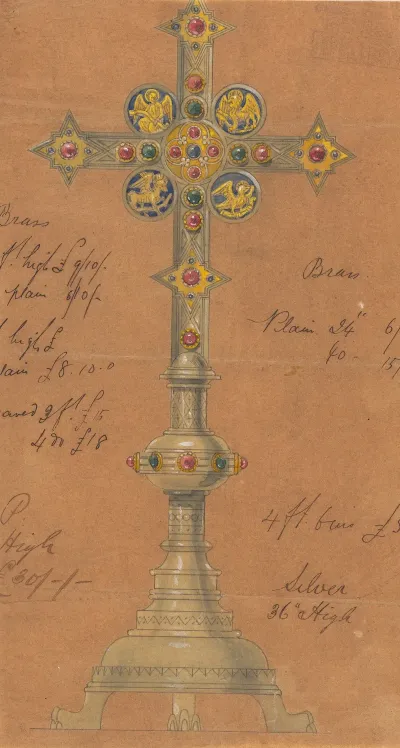 Brass
high £ 9/10/-
plain 8/0/-
high £
£8.10.0
3 ft. £15
4 do £18
P
High
£30/-/-
Brass.
Plain 24" 6/
40 - 15/
4 ft. 6 ins £3
Silver
36" High